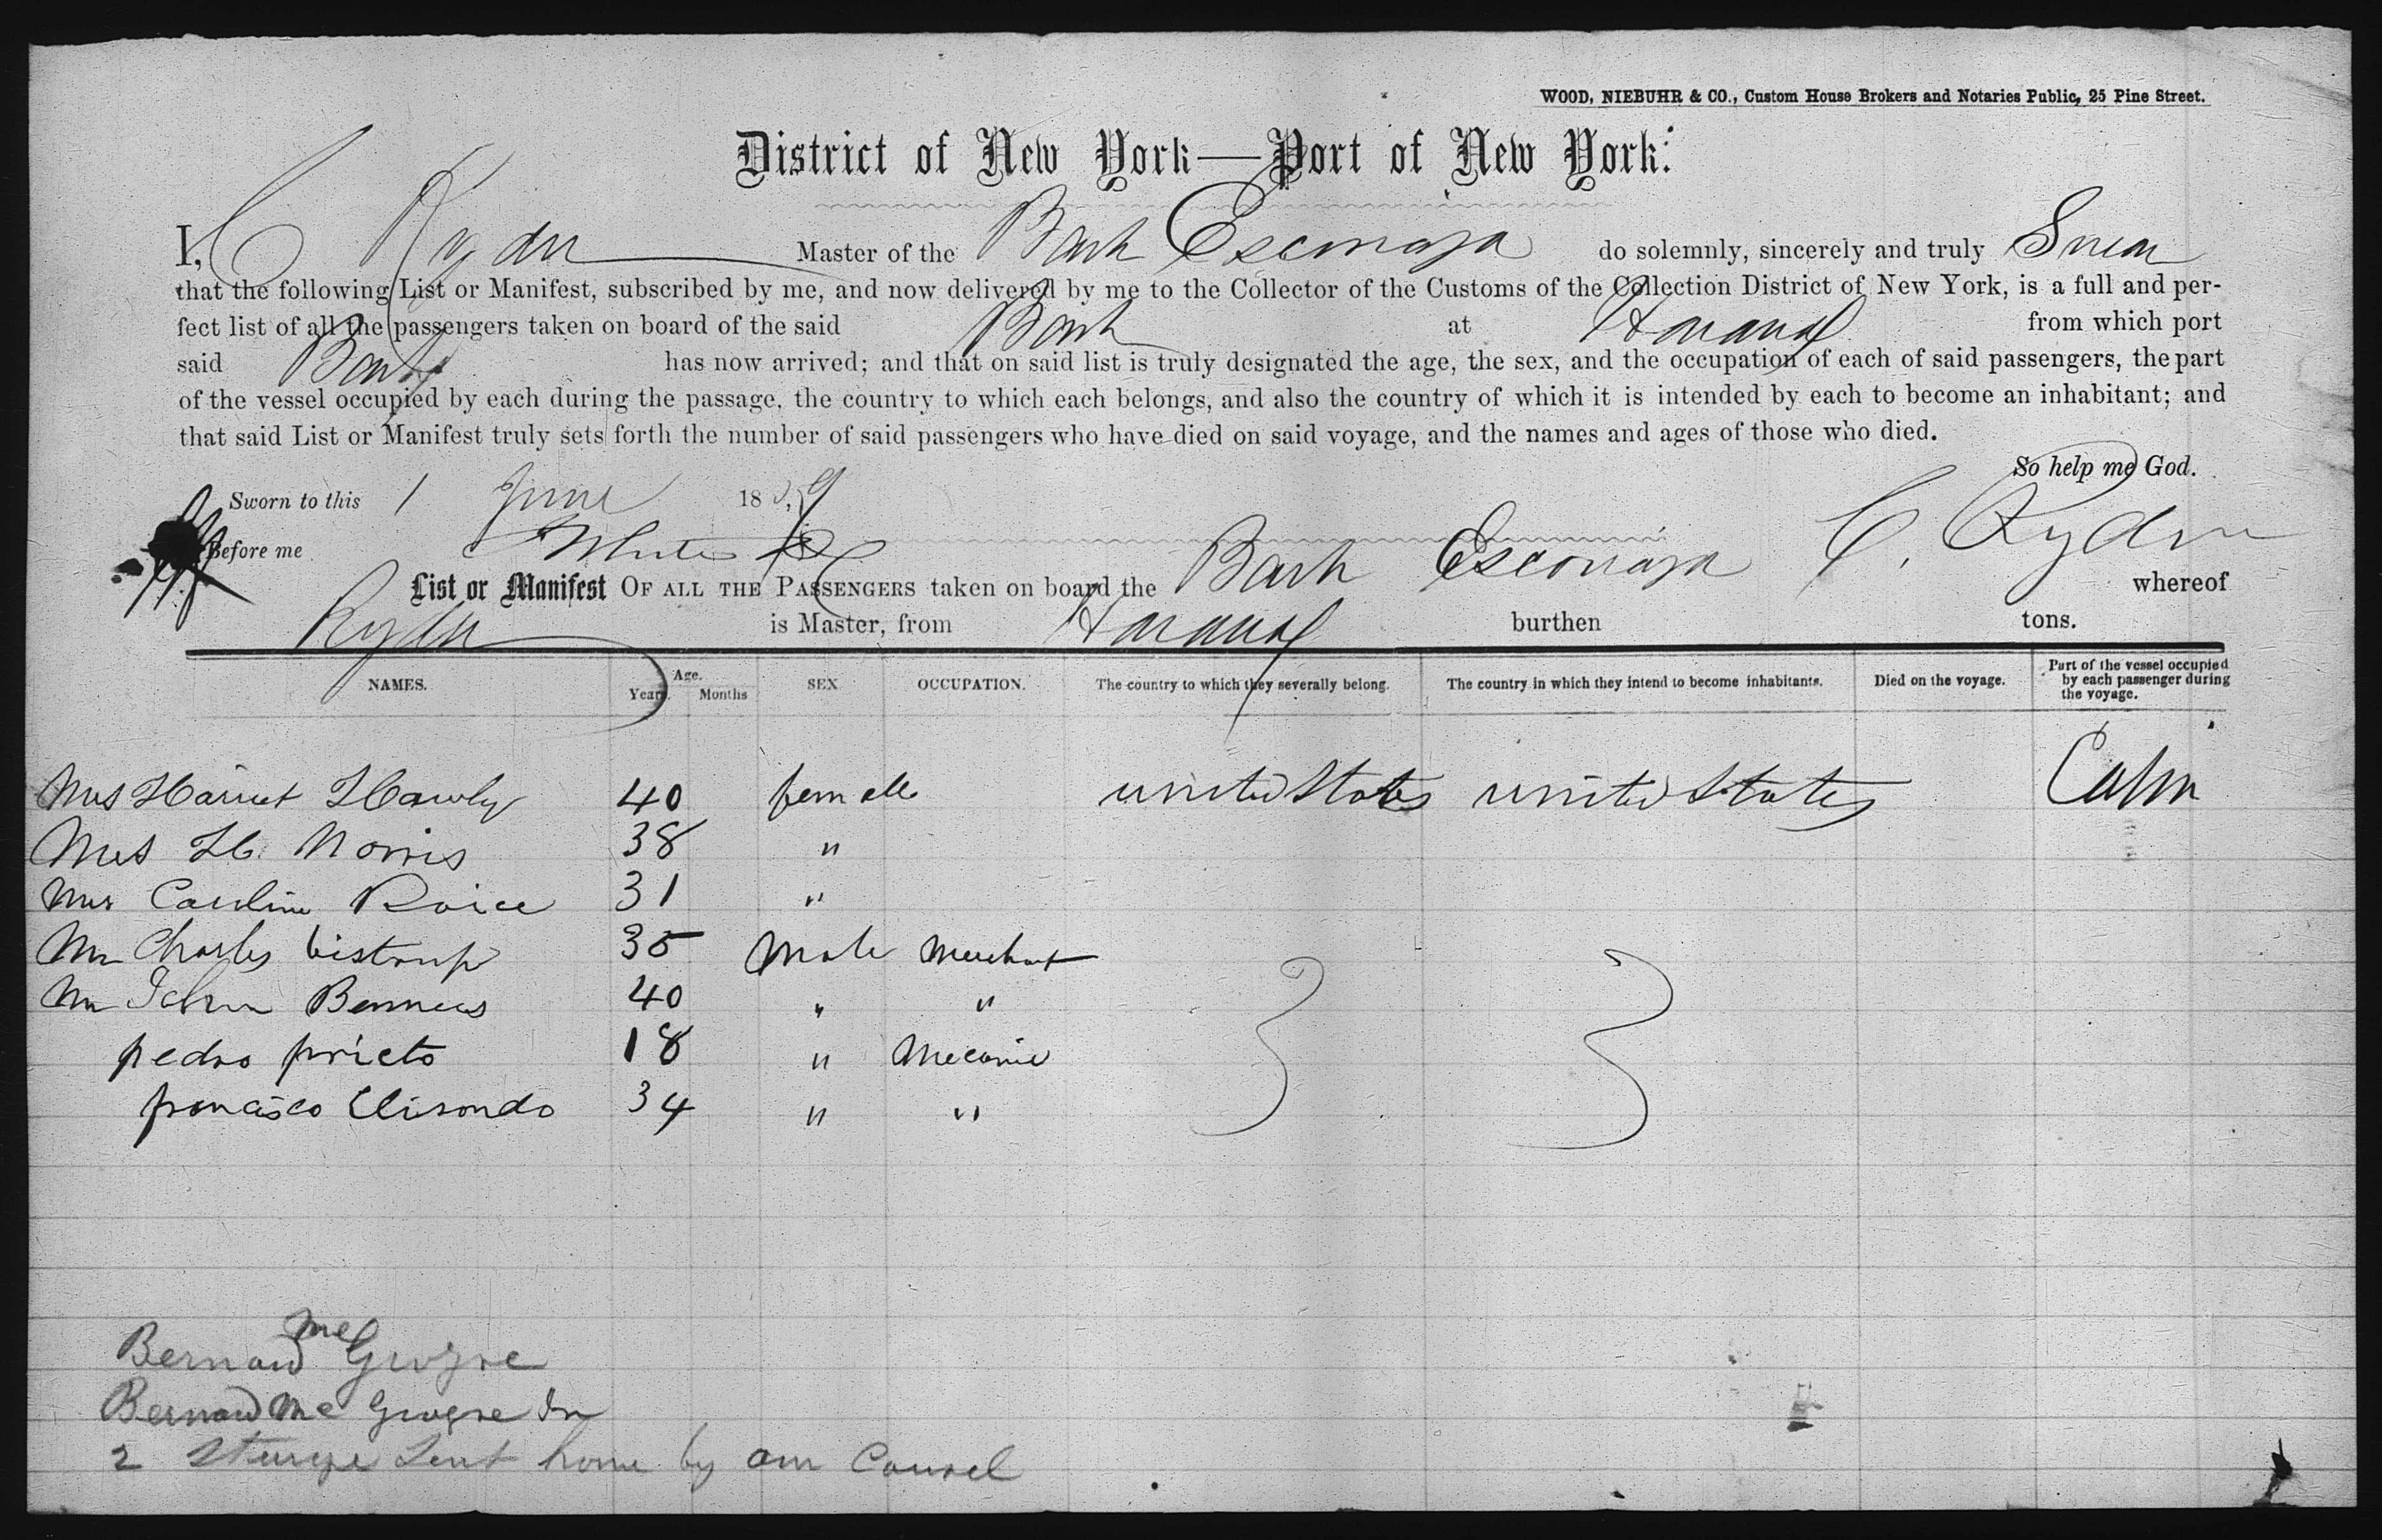 WOOD, NIEBUHR & CO., Custom House Brokers and Notaries Public, 25 Pine Street.
District of New York—Port of New York:
I, C Ryder Master of the Bark Escoriaza do solemnly, sincerely and truly Swear
that the following List or Manifest, subscribed by me, and now delivered by me to the Collector of the Customs of the Collection District of New York, is a full and per-
fect list of all the passengers taken on board of the said Bark at Havana from which port
said Bark has now arrived; and that on said list is truly designated the age, the sex, and the occupation of each of said passengers, the part
of the vessel occupied by each during the passage, the country to which each belongs, and also the country of which it is intended by each to become an inhabitant; and
that said List or Manifest truly sets forth the number of said passengers who have died on said voyage, and the names and ages of those who died.
So help me God.
Sworn to this 1 June 1859
Before me C. Ryder
List or Manifest OF ALL THE PASSENGERS taken on board the Bark Escoriaza whereof
C Ryder is Master, from Havana burthen tons.
NAMES. Age. Years. Months SEX OCCUPATION. The country to which they severally belong. The country in which they intend to become inhabitants. Died on the voyage. Part of the vessel occupied by each passenger during the voyage.
Mrs Harriet Hawly 40 female united States united States Cabin
Mrs H. Norris 38 "
Mrs Caroline Roice 31 "
Mr Charles 35 Male Merchant
Mr John 40 " "
pedro prieto 18 " Mecanic
francisco Elisondo 34 " "
Bernard Mc
Bernard Mc Jr
2 Sent home by am Consel